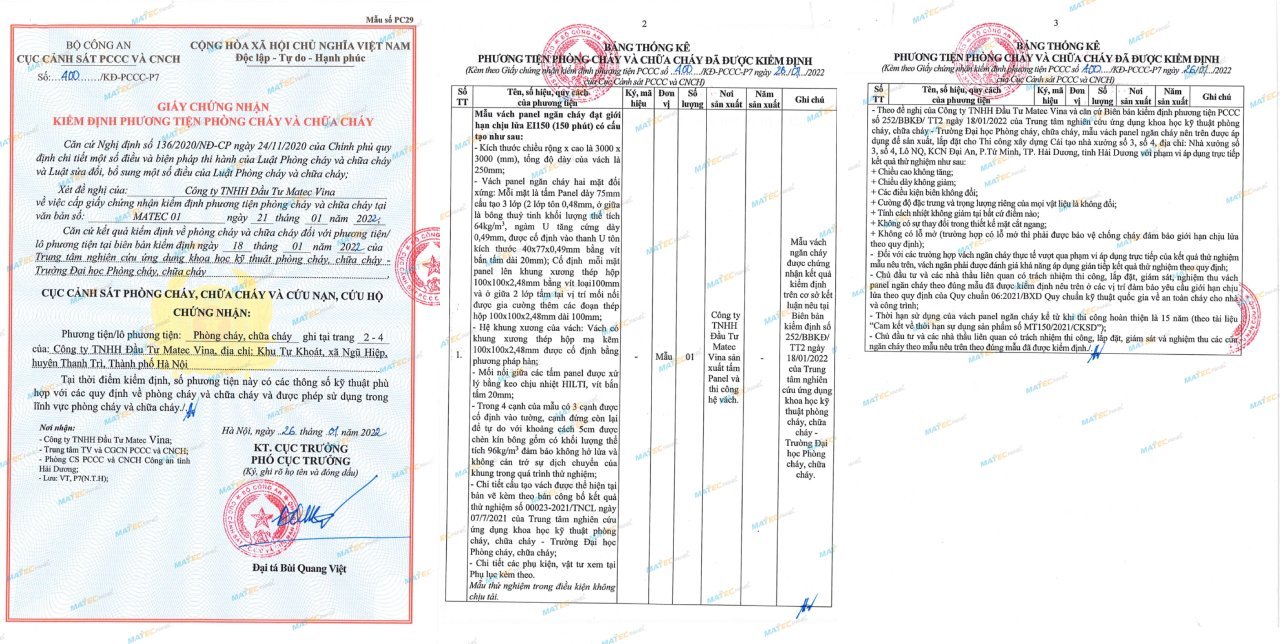 Mẫu số PC29
BỘ CÔNG AN
CỤC CẢNH SÁT PCCC VÀ CNCH
Số: 400 /KĐ-PCCC-P7
CỘNG HÒA XÃ HỘI CHỦ NGHĨA VIỆT NAM
Độc lập - Tự do - Hạnh phúc
GIẤY CHỨNG NHẬN
KIỂM ĐỊNH PHƯƠNG TIỆN PHÒNG CHÁY VÀ CHỮA CHÁY
Căn cứ Nghị định số 136/2020/NĐ-CP ngày 24/11/2020 của Chính phủ quy
định chi tiết một số điều và biện pháp thi hành của Luật Phòng cháy và chữa cháy
và Luật sửa đổi, bổ sung một số điều của Luật Phòng cháy và chữa cháy;
Xét đề nghị của: Công ty TNHH Đầu Tư Matec Vina
về việc cấp giấy chứng nhận kiểm định phương tiện phòng cháy và chữa cháy tại
văn bản số: MATEC 01 ngày 21 tháng 01 năm 2022
Căn cứ kết quả kiểm định về phòng cháy và chữa cháy đối với phương tiện/
lô phương tiện tại biên bản kiểm định ngày 18 tháng 01 năm 2022 của
Trung tâm nghiên cứu ứng dụng khoa học kỹ thuật phòng cháy, chữa cháy -
Trường Đại học Phòng cháy, chữa cháy
CỤC CẢNH SÁT PHÒNG CHÁY, CHỮA CHÁY VÀ CỨU NẠN, CỨU HỘ
CHỨNG NHẬN:
Phương tiện/lô phương tiện: Phòng cháy, chữa cháy ghi tại trang 2 - 4
của: Công ty TNHH Đầu Tư Matec Vina, địa chỉ: Khu Tư Khoát, xã Ngũ Hiệp,
huyện Thanh Trì, Thành phố Hà Nội
Tại thời điểm kiểm định, số phương tiện này có các thông số kỹ thuật phù
hợp với các quy định về phòng cháy và chữa cháy và được phép sử dụng trong
lĩnh vực phòng cháy và chữa cháy./.
Nơi nhận:
- Công ty TNHH Đầu Tư Matec Vina;
- Trung tâm TV và CGCN PCCC và CNCH;
- Phòng CS PCCC và CNCH Công an tỉnh
Hải Dương;
- Lưu: VT, P7(N.T.H);
Hà Nội, ngày 26 tháng 01 năm 2022
KT. CỤC TRƯỞNG
PHÓ CỤC TRƯỞNG
(Ký, ghi rõ họ tên và đóng dấu)
Đại tá Bùi Quang Việt
2
BẢNG THỐNG KÊ
PHƯƠNG TIỆN PHÒNG CHÁY VÀ CHỮA CHÁY ĐÃ ĐƯỢC KIỂM ĐỊNH
(Kèm theo Giấy chứng nhận kiểm định phương tiện PCCC số 400 /KĐ-PCCC-P7 ngày 26/01/2022
của Cục Cảnh sát PCCC và CNCH)
Số TT
Tên, số hiệu, quy cách của phương tiện
Ký, mã hiệu
Đơn vị
Số lượng
Nơi sản xuất
Năm sản xuất
Ghi chú
1.
Mẫu vách panel ngăn cháy đạt giới
hạn chịu lửa EI150 (150 phút) có cấu
tạo như sau:
- Kích thước chiều rộng x cao là 3000 x
3000 (mm), tổng độ dày của vách là
250mm;
- Vách panel ngăn cháy hai mặt đối
xứng: Mỗi mặt là tấm Panel dày 75mm
cấu tạo 3 lớp (2 lớp tôn 0,48mm, ở giữa
là bông thuỷ tinh khối lượng thể tích
64kg/m³, ngàm U tăng cứng dày
0,49mm, được cố định vào thanh U tôn
kích thước 40x77x0,49mm bằng vít
bắn tấm dài 20mm); Cố định mỗi mặt
panel lên khung xương thép hộp
100x100x2,48mm bằng vít loại100mm
và ở giữa 2 lớp tấm tại vị trí mối nối
được gia cường thêm các đoạn thép
hộp 100x100x2,48mm dài 100mm;
- Hệ khung xương của vách: Vách có
khung xương thép hộp mạ kẽm
100x100x2,48mm được cố định bằng
phương pháp hàn;
- Mối nối giữa các tấm panel được xử
lý bằng keo chịu nhiệt HILTI, vít bắn
tấm 20mm;
- Trong 4 cạnh của mẫu có 3 cạnh được
cố định vào tường, cạnh đứng còn lại
để tự do với khoảng cách 5cm được
chèn kín bông gốm có khối lượng thể
tích 96kg/m³ đảm bảo không hở lửa và
không cản trở sự dịch chuyển của
khung trong quá trình thử nghiệm;
- Chi tiết cấu tạo vách được thể hiện tại
bản vẽ kèm theo bản công bố kết quả
thử nghiệm số 00023-2021/TNCL ngày
07/7/2021 của Trung tâm nghiên cứu
ứng dụng khoa học kỹ thuật phòng
cháy, chữa cháy - Trường Đại học
Phòng cháy, chữa cháy;
- Chi tiết các phụ kiện, vật tư xem tại
Phụ lục kèm theo.
Mẫu thử nghiệm trong điều kiện không
chịu tải.
-
Mẫu
01
Công ty
TNHH
Đầu Tư
Matec
Vina sản
xuất tấm
Panel và
thi công
hệ vách.
-
Mẫu vách
ngăn cháy
được chứng
nhận kết quả
kiểm định
trên cơ sở kết
luận nêu tại
Biên bản
kiểm định số
252/BBKĐ/
TT2 ngày
18/01/2022
của Trung
tâm nghiên
cứu ứng dụng
khoa học kỹ
thuật phòng
cháy, chữa
cháy -
Trường Đại
học Phòng
cháy, chữa
cháy.
3
BẢNG THỐNG KÊ
PHƯƠNG TIỆN PHÒNG CHÁY VÀ CHỮA CHÁY ĐÃ ĐƯỢC KIỂM ĐỊNH
(Kèm theo Giấy chứng nhận kiểm định phương tiện PCCC số 400 /KĐ-PCCC-P7 ngày 26/01/2022
của Cục Cảnh sát PCCC và CNCH)
Số TT
Tên, số hiệu, quy cách của phương tiện
Ký, mã hiệu
Đơn vị
Số lượng
Nơi sản xuất
Năm sản xuất
Ghi chú
- Theo đề nghị của Công ty TNHH Đầu Tư Matec Vina và căn cứ Biên bản kiểm định phương tiện PCCC
số 252/BBKĐ/ TT2 ngày 18/01/2022 của Trung tâm nghiên cứu ứng dụng khoa học kỹ thuật phòng
cháy, chữa cháy - Trường Đại học Phòng cháy, chữa cháy, mẫu vách panel ngăn cháy nên trên được áp
dụng để sản xuất, lắp đặt cho Thi công xây dựng Cải tạo nhà xưởng số 3, số 4, địa chỉ: Nhà xưởng số
3, số 4, Lô NQ, KCN Đại An, P.Tứ Minh, TP. Hải Dương, tỉnh Hải Dương với phạm vi áp dụng trực tiếp
kết quả thử nghiệm như sau:
+ Chiều cao không tăng;
+ Chiều dày không giảm;
+ Các điều kiện biên không đổi;
+ Cường độ đặc trưng và trọng lượng riêng của mọi vật liệu là không đổi;
+ Tính cách nhiệt không giảm tại bất cứ điểm nào;
+ Không có sự thay đổi trong thiết kế mặt cắt ngang;
+ Không có lỗ mở (trường hợp có lỗ mở thì phải được bảo vệ chống cháy đảm bảo giới hạn chịu lửa
theo quy định);
- Đối với các trường hợp vách ngăn cháy thực tế vượt qua phạm vi áp dụng trực tiếp của kết quả thử nghiệm
mẫu nêu trên, vách ngăn phải được đánh giá khả năng áp dụng gián tiếp kết quả thử nghiệm theo quy định;
- Chủ đầu tư và các nhà thầu liên quan có trách nhiệm thi công, lắp đặt, giám sát, nghiệm thu vách
panel ngăn cháy theo đúng mẫu đã được kiểm định nêu trên ở các vị trí đảm bảo yêu cầu giới hạn chịu
lửa theo quy định của Quy chuẩn 06:2021/BXD Quy chuẩn kỹ thuật quốc gia về an toàn cháy cho nhà
và công trình;
- Thời hạn sử dụng của vách panel ngăn cháy kể từ khi thi công hoàn thiện là 15 năm (theo tài liệu
"Cam kết về thời hạn sử dụng sản phẩm số MT150/2021/CKSD");
- Chủ đầu tư và các nhà thầu liên quan có trách nhiệm thi công, lắp đặt, giám sát và nghiệm thu các cửa
ngăn cháy theo mẫu nêu trên theo đúng mẫu đã được kiểm định./.